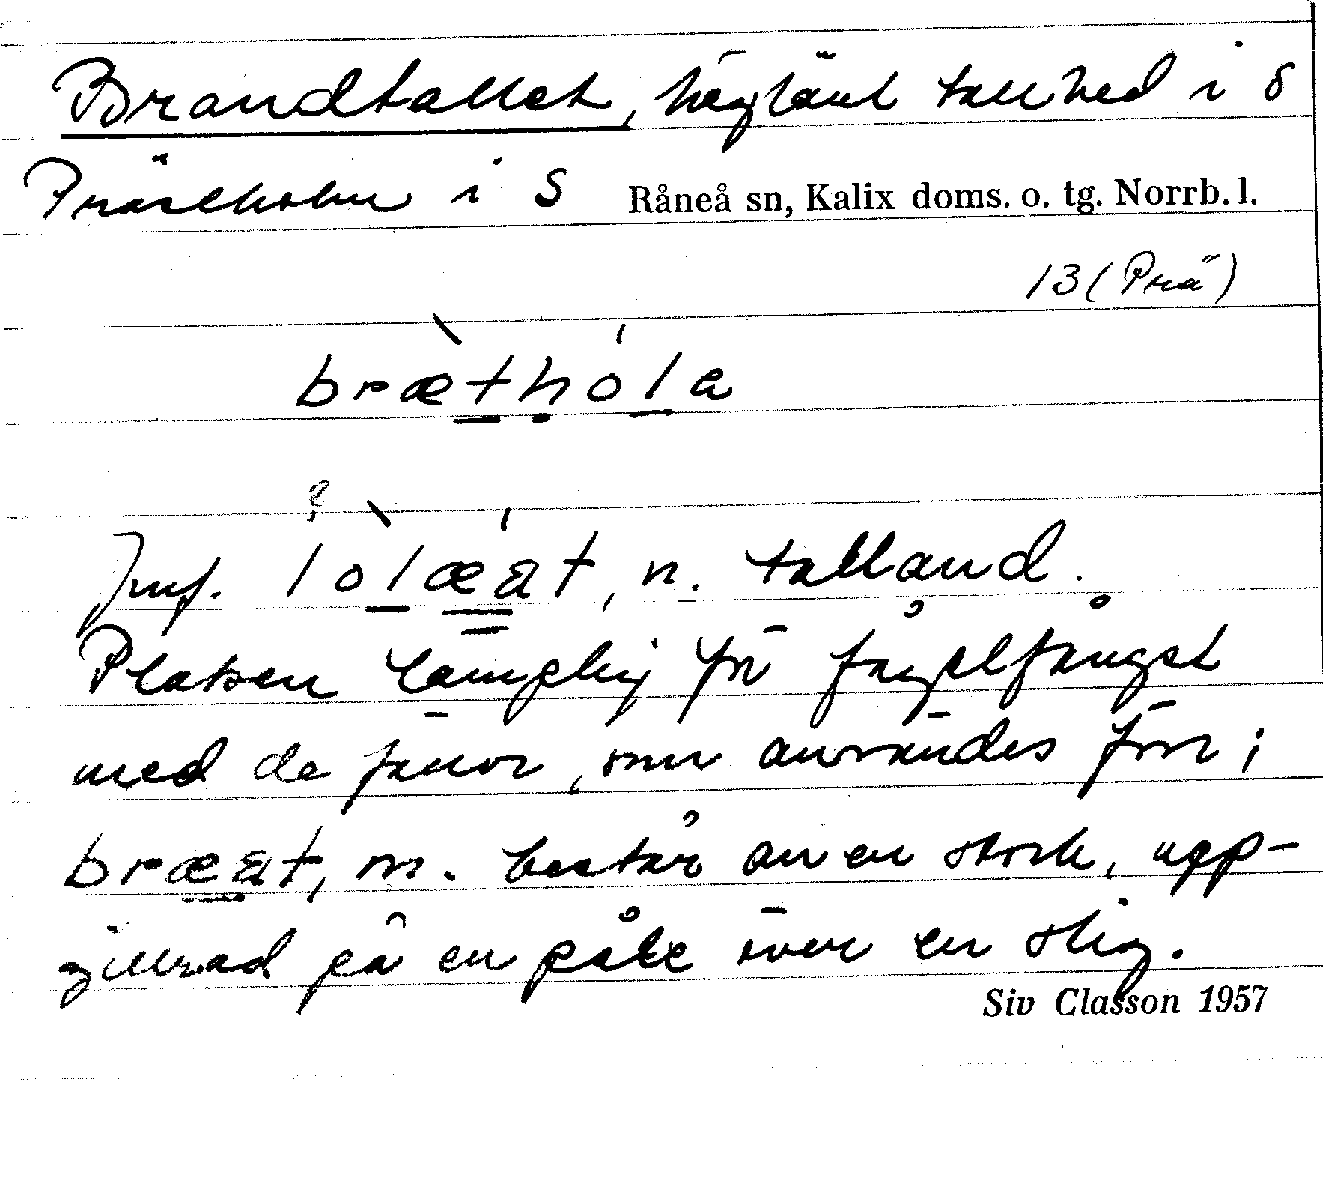 Brandtallet, höglänt tallhed i S
Prästholm i S Råneå sn, Kalix doms. o. tg. Norrb. l.
13 (Prä)
bræthóla
?
Jmf. lolæat, n. talland.
Platsen lämplig för fågelfångst
med de fällor, som användes förr;
bræat, m. består av en stock, upp-
gillrad på en påle över en stig.
Siv Classon 1957